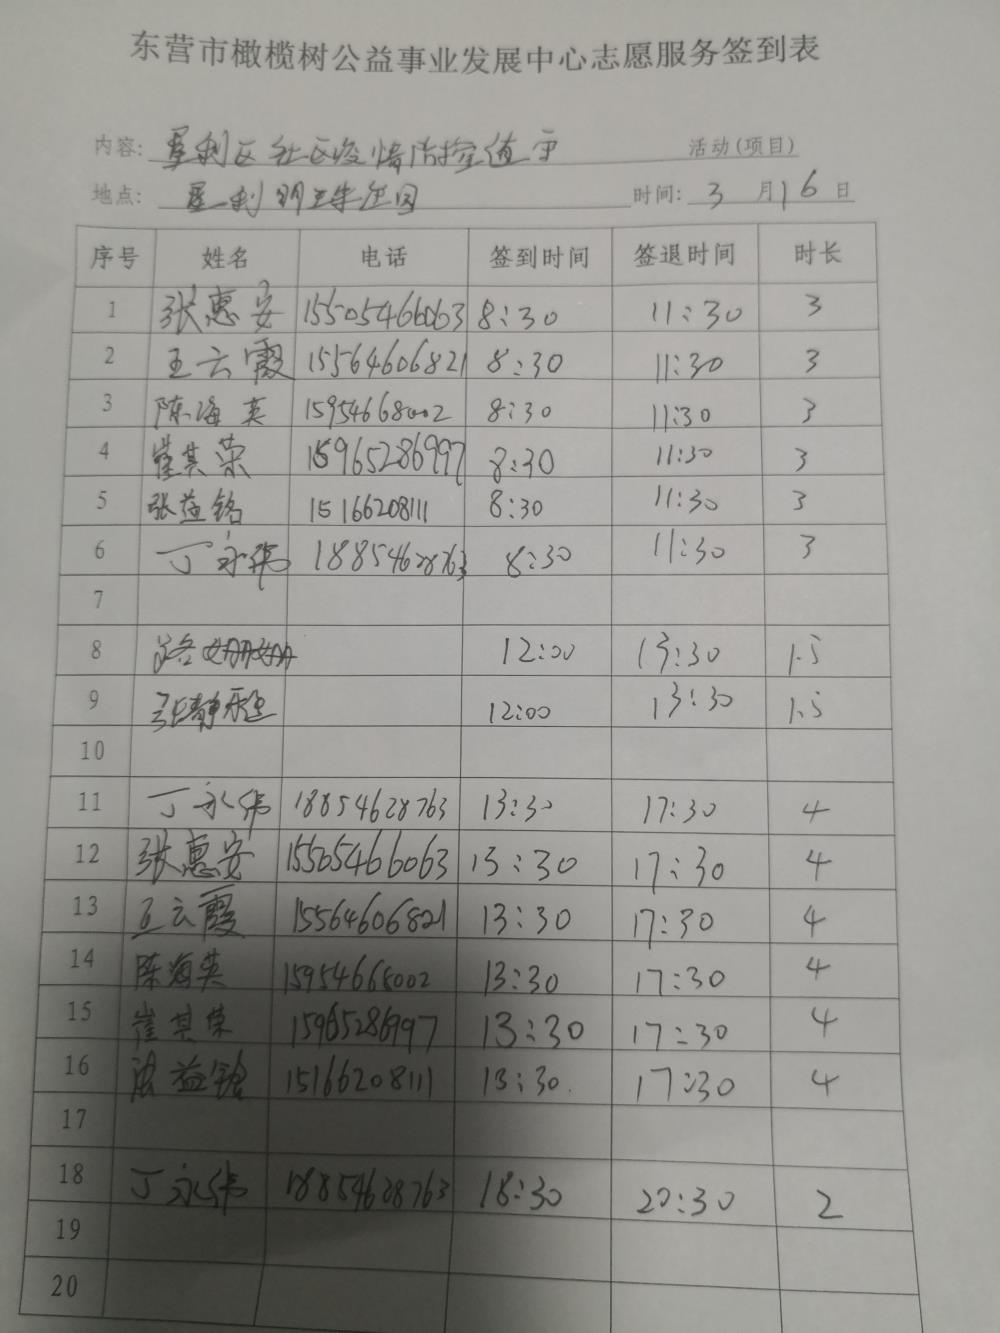 东营市橄榄树公益事业发展中心志愿服务签到表
内容: 垦利区社区疫情防控值守 活动(项目)
地点: 垦利 时间: 3 月 16 日
序号 姓名 电话 签到时间 签退时间 时长
1 张惠安 15505466063 8:30 11:30 3
2 王云霞 15564606821 8:30 11:30 3
3 陈海英 15954668002 8:30 11:30 3
4 崔其荣 15965286997 8:30 11:30 3
5 张益铭 15166208111 8:30 11:30 3
6 丁永伟 18854628763 8:30 11:30 3
7
8 路姗姗 12:00 13:30 1.5
9 张静 12:00 13:30 1.5
10
11 丁永伟 18854628763 13:30 17:30 4
12 张惠安 15505466063 13:30 17:30 4
13 王云霞 15564606821 13:30 17:30 4
14 陈海英 15954668002 13:30 17:30 4
15 崔其荣 15965286997 13:30 17:30 4
16 张益铭 15166208111 13:30 17:30 4
17
18 丁永伟 18854628763 18:30 20:30 2
19
20